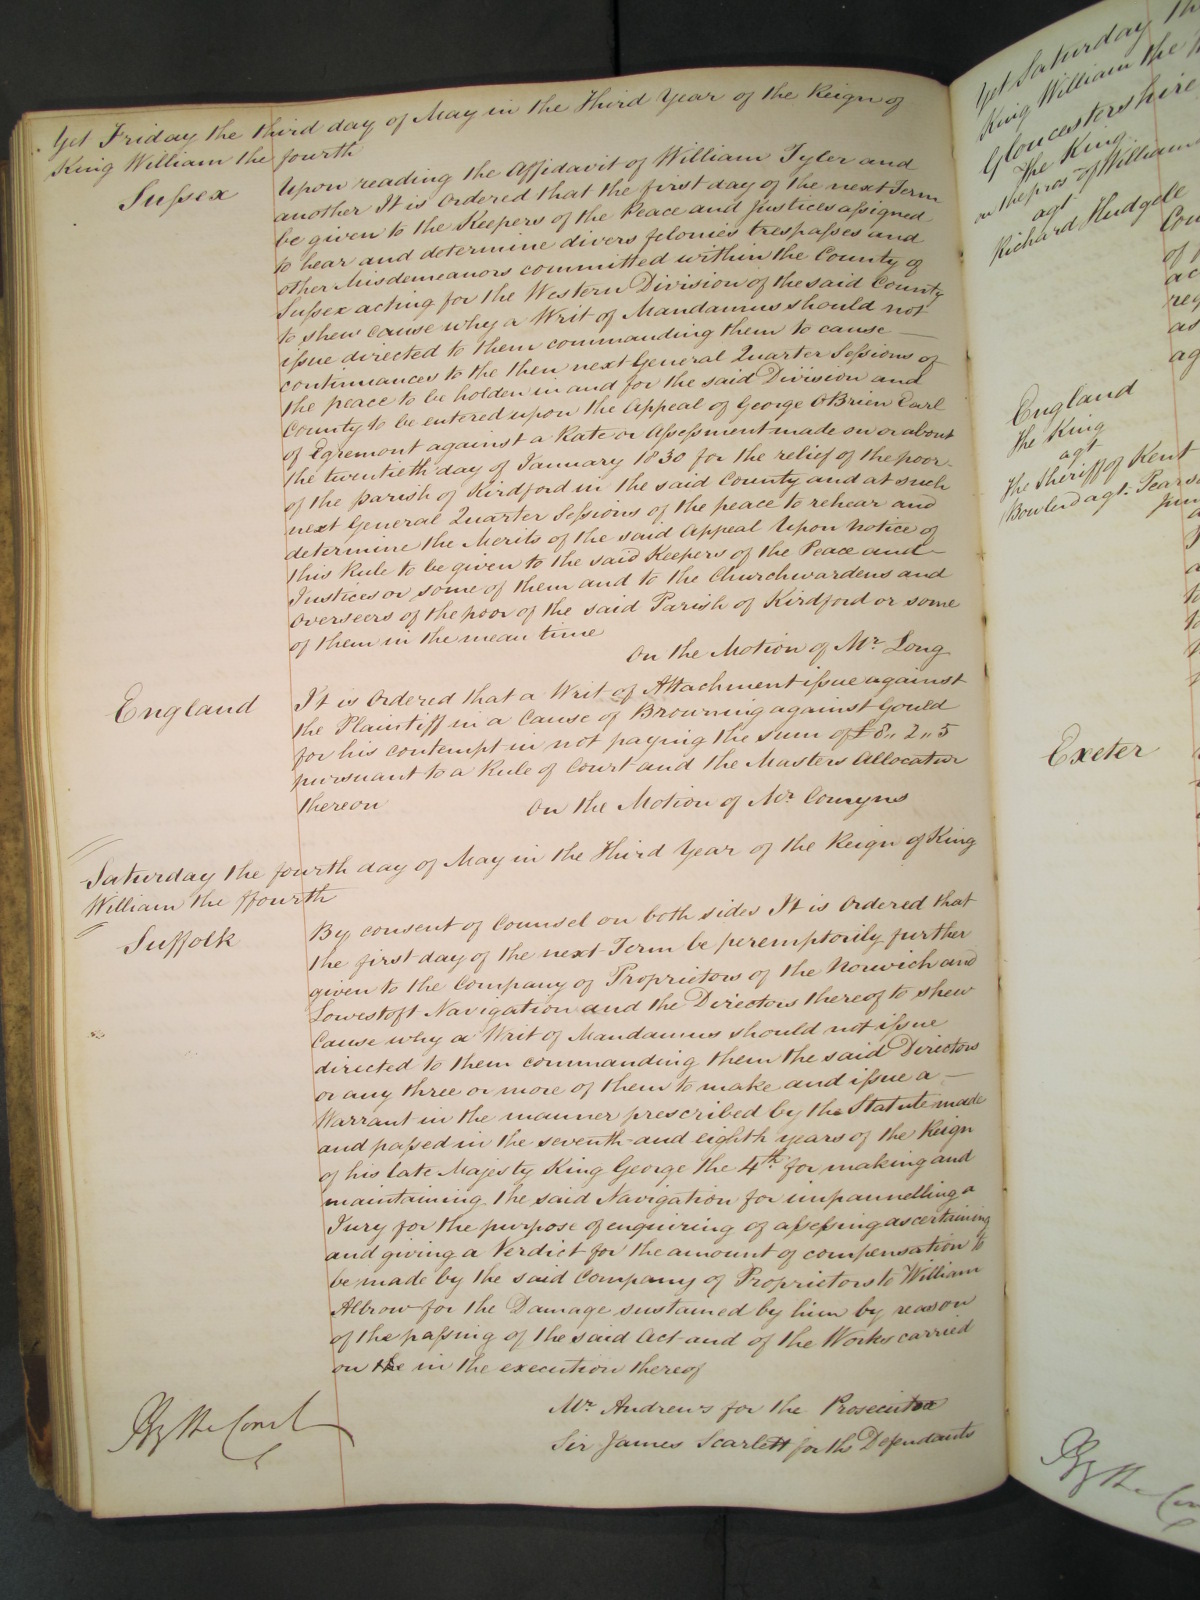 Yet Friday the third day of May in the Third Year of the Reign of
King William the fourth
Sussex
Upon reading the Affidavit of William Tyler and
another It is Ordered that the first day of the next Term
be given to the Keepers of the Peace and Justices assigned
to hear and determine divers felonies trespasses and
other Misdemeanors committed within the County of
Sussex acting for the Western Division of the said County
to shew cause why a Writ of Mandamus should not
issue directed to them commanding them to cause
continuances to the then next General Quarter Sessions of
the peace to be holden in and for the said Division and
County to be entered upon the Appeal of George OBrien Earl
of Egremont against a Rate or Assessment made on or about
the twentieth day of January 1830 for the relief of the poor
of the parish of Kirdford in the said County and at such
next General Quarter Sessions of the peace to rehear and
determine the Merits of the said Appeal Upon Notice of
this Rule to be given to the said Keepers of the Peace and
Justices or some of them and to the Churchwardens and
Overseers of the poor of the said Parish of Kirdford or some
of them in the mean time
On the Motion of Mr. Long
England
It is Ordered that a Writ of Attachment issue against
the Plaintiff in a Cause of Browning against Gould
for his contempt in not paying the sum of £8,, 2,, 5
pursuant to a Rule of Court and the Masters Allocatur
thereon
On the Motion of Mr. Comyns
Saturday the fourth day of May in the Third Year of the Reign of King
William the ffourth
Suffolk
By consent of Counsel on both sides It is Ordered that
the first day of the next Term be peremptorily further
given to the Company of Proprietors of the Norwich and
Lowestoft Navigation and the Directors thereof to shew
Cause why a Writ of Mandamus should not issue
directed to them commanding them the said Directors
or any three or more of them to make and issue a
Warrant in the manner prescribed by the Statute made
and passed in the seventh and eighth years of the Reign
of his late Majesty King George the 4th. for making and
maintaining the said Navigation for impannelling a
Jury for the purpose of enquiring of assessing ascertaining
and giving a Verdict for the amount of compensation to
be made by the said Company of Proprietors to William
Albrow for the Damage sustained by him by reason
of the passing of the said Act and of the Works carried
on in the execution thereof
Mr. Andrews for the Prosecutor
Sir James Scarlett for the Defendants
By the Court
Yet Saturday
King William the
Gloucestershire
The King
on the pros. of William
agt
Richard Hudgell
England
The King
agt
The Sheriff of Kent
Exeter
By the